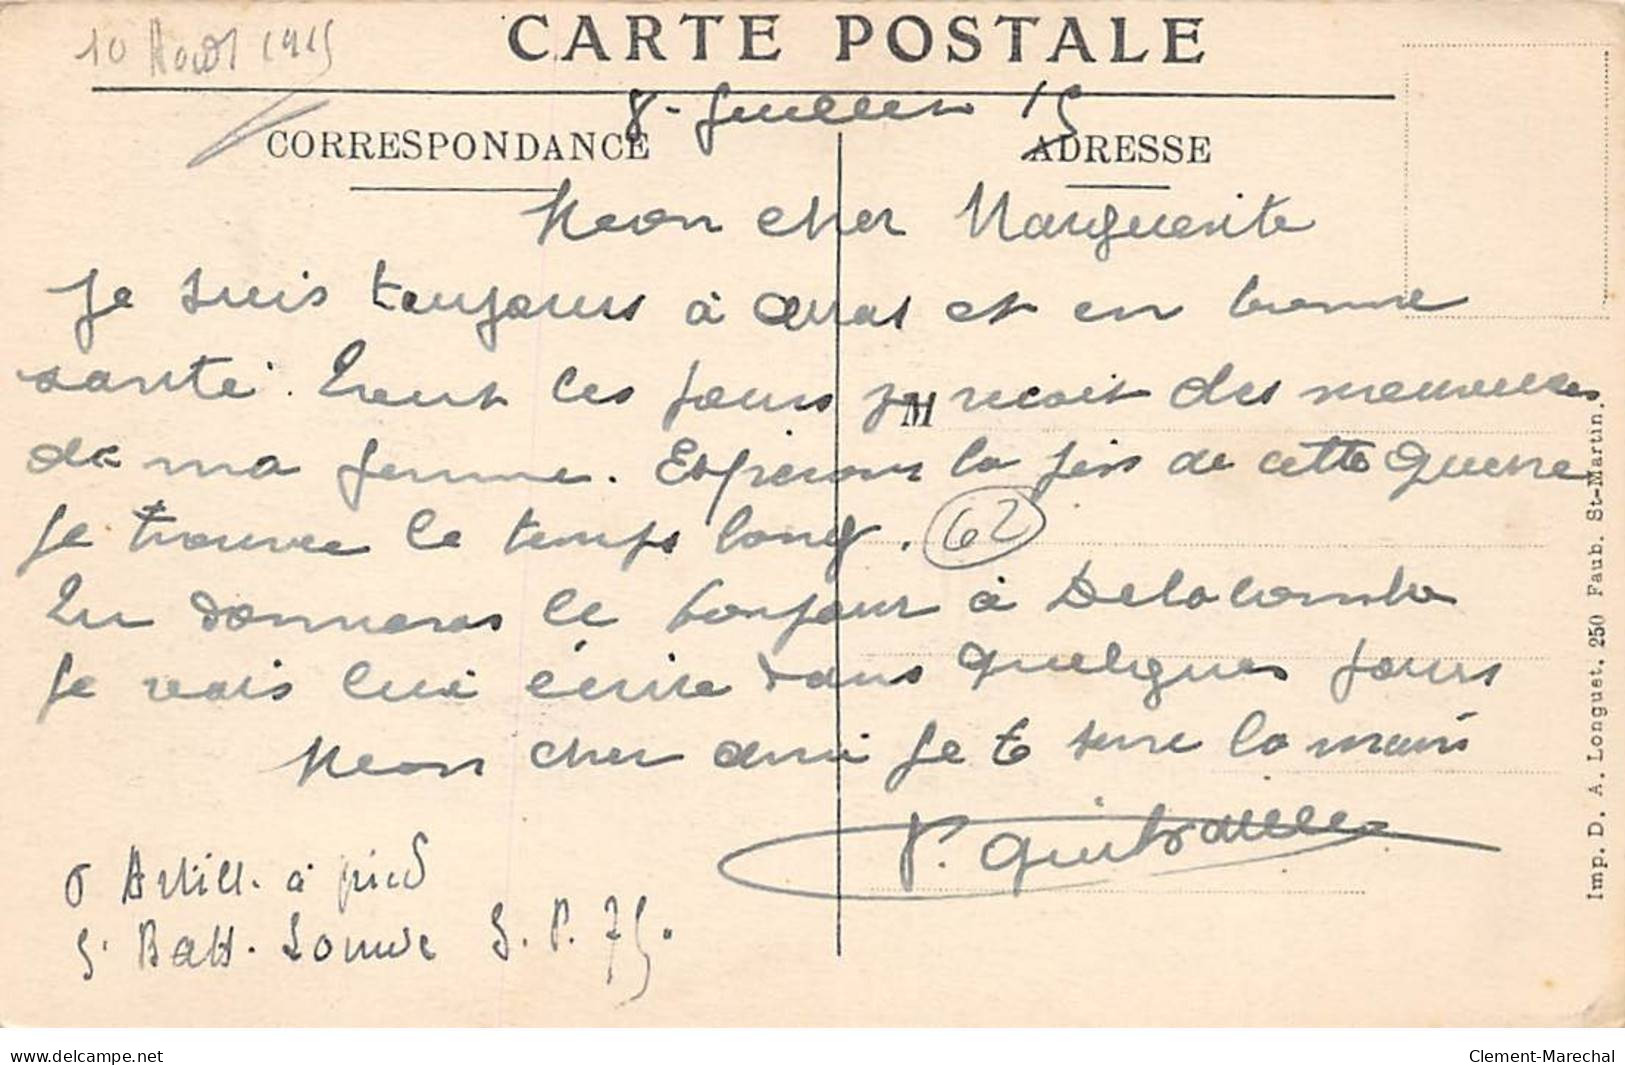 10 Août 1915
CARTE POSTALE
8 - Juillet 15
CORRESPONDANCE
ADRESSE
Mon cher Marguerite
Je suis toujours à Arras et en bonne
santé. Tout les jours je recoit des nouvelles
M
de ma femme. Esperons la fin de cette guerre
je trouve le temps long.
62
Tu donneras le bonjour à Delacombe
Je vais lui écrire dans quelques jours
Mon cher ami je te serre la main
P.
6 Artill. à pied
5. Batt. Lourde S. P. 75.
Imp. D. A. Longuet. 250 Faub. St-Martin.
www.delcampe.net
Clement-Marechal